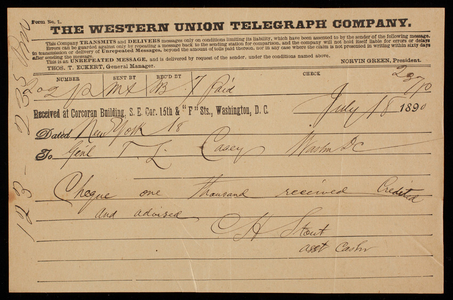 Form No. 1.
THE WESTERN UNION TELEGRAPH COMPANY.
This Company TRANSMITS and DELIVERS messages only on conditions limiting its liability, which have been assented to by the sender of the following message.
Errors can be guarded against only by repeating a message back to the sending station for comparison, and the company will not hold itself liable for errors or delays
in transmission or delivery of Unrepeated Messages, beyond the amount of tolls paid thereon, nor in any case where the claim is not presented in writing within sixty days
after sending the message.
This is an UNREPEATED MESSAGE, and is delivered by request of the sender, under the conditions named above.
THOS. T. ECKERT, General Manager. NORVIN GREEN, President.
NUMBER SENT BY REC'D BY CHECK
Paid
Received at Corcoran Building, S. E. Cor. 15th & "F" Sts., Washington, D. C. July 18 1890
Dated New York 18
To Genl T L Casey Washn DC
Cheque one thousand received Credited
and advised
C H Stout
asst Cashr